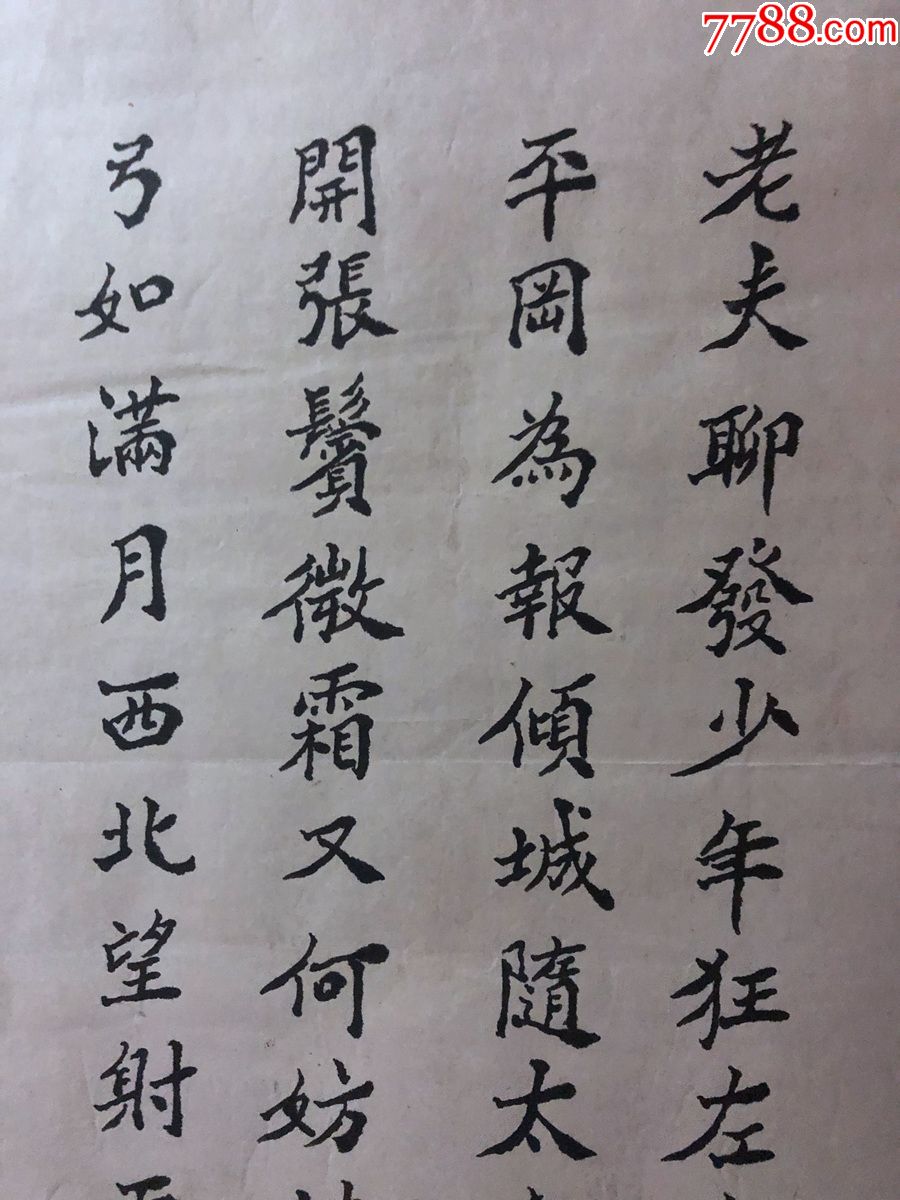 7788.com
老夫聊發少年狂左
平岡為報傾城隨太
開張鬢微霜又何妨
弓如滿月西北望射